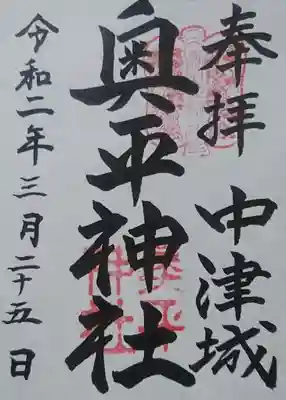 奉拝 中津城
奥平神社
令和二年三月二十五日
奥平神社